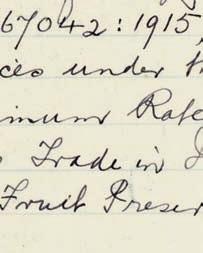 67042: 1915,
ces under th
imum Rate
Trade in
Fruit Preser